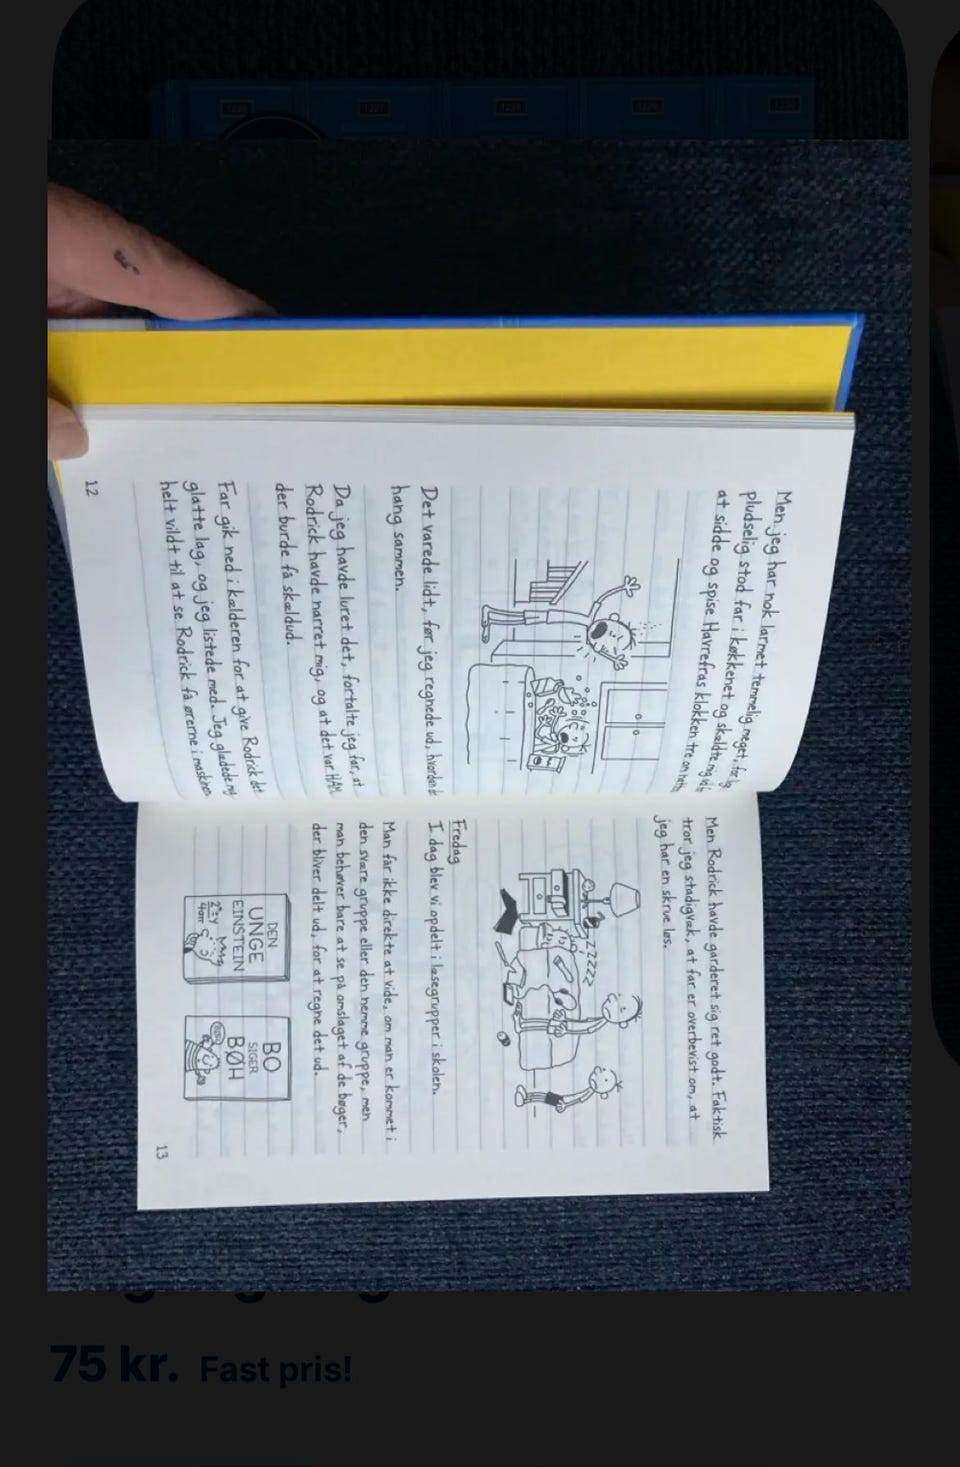 Men jeg har nok larmet temmelig meget, for
pludselig stod far i køkkenet og skældte mig ud
at sidde og spise Havrefras klokken tre om
Det varede lidt, før jeg regnede ud, hvordan
hang sammen.
Da jeg havde luret det, fortalte jeg far, at
Rodrick havde narret mig, og at det var HAM,
der burde få skældud.
Far gik ned i kælderen for at give Rodrick det
glatte lag, og jeg listede med. Jeg glædede mig
helt vildt til at se Rodrick få ørerne i maskinen
12
Men Rodrick havde garderet sig ret godt. Faktisk
tror jeg stadigvæk, at far er overbevist om, at
jeg har en skrue løs.
ZZZZZ
Fredag
I dag blev vi opdelt i læsegrupper i skolen.
Man får ikke direkte at vide, om man er kommet i
den svære gruppe eller den nemme gruppe, men
man behøver bare at se på omslaget af de bøger,
der bliver delt ud, for at regne det ud.
DEN
UNGE
EINSTEIN
BO
SIGER
BØH
13
75 kr. Fast pris!